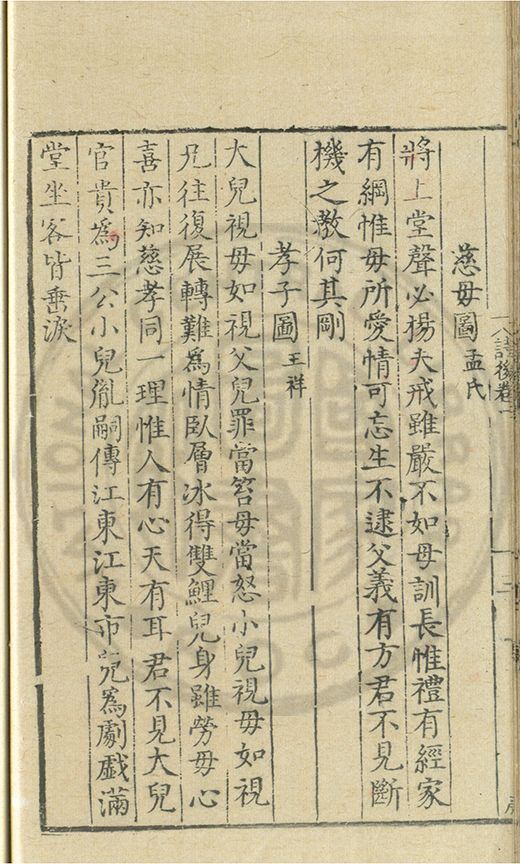 慈母圖 孟氏
將上堂聲必揚夫戒雖嚴不如母訓長惟禮有經家
有綱惟母所愛情可忘生不逮父義有方君不見斷
機之教何其剛
孝子圖 王祥
大兒視母如視父兒罪當笞母當怒小兒視母如視
兄往復展轉難爲情臥層冰得雙鯉兒身雖勞母心
喜亦知慈孝同一理惟人有心天有耳君不見大兒
官貴爲三公小兒胤嗣傳江東江東市兒爲劇戲滿
堂坐客皆垂淚